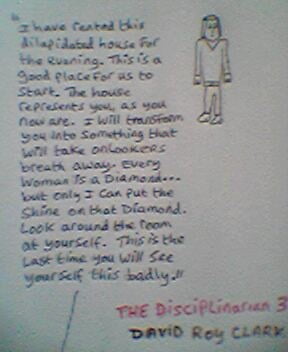 "I have rented this
dilapidated house for
the evening. This is a
good place for us to
start. The house
represents you, as you
now are. I will transform
you into something that
will take onlookers
breath away. Every
woman is a Diamond...
but only I can put the
Shine on that Diamond.
Look around the room
at yourself. This is the
last time you will see
yourself this badly."
THE DISCIPLINARIAN 3
DAVID ROY CLARK